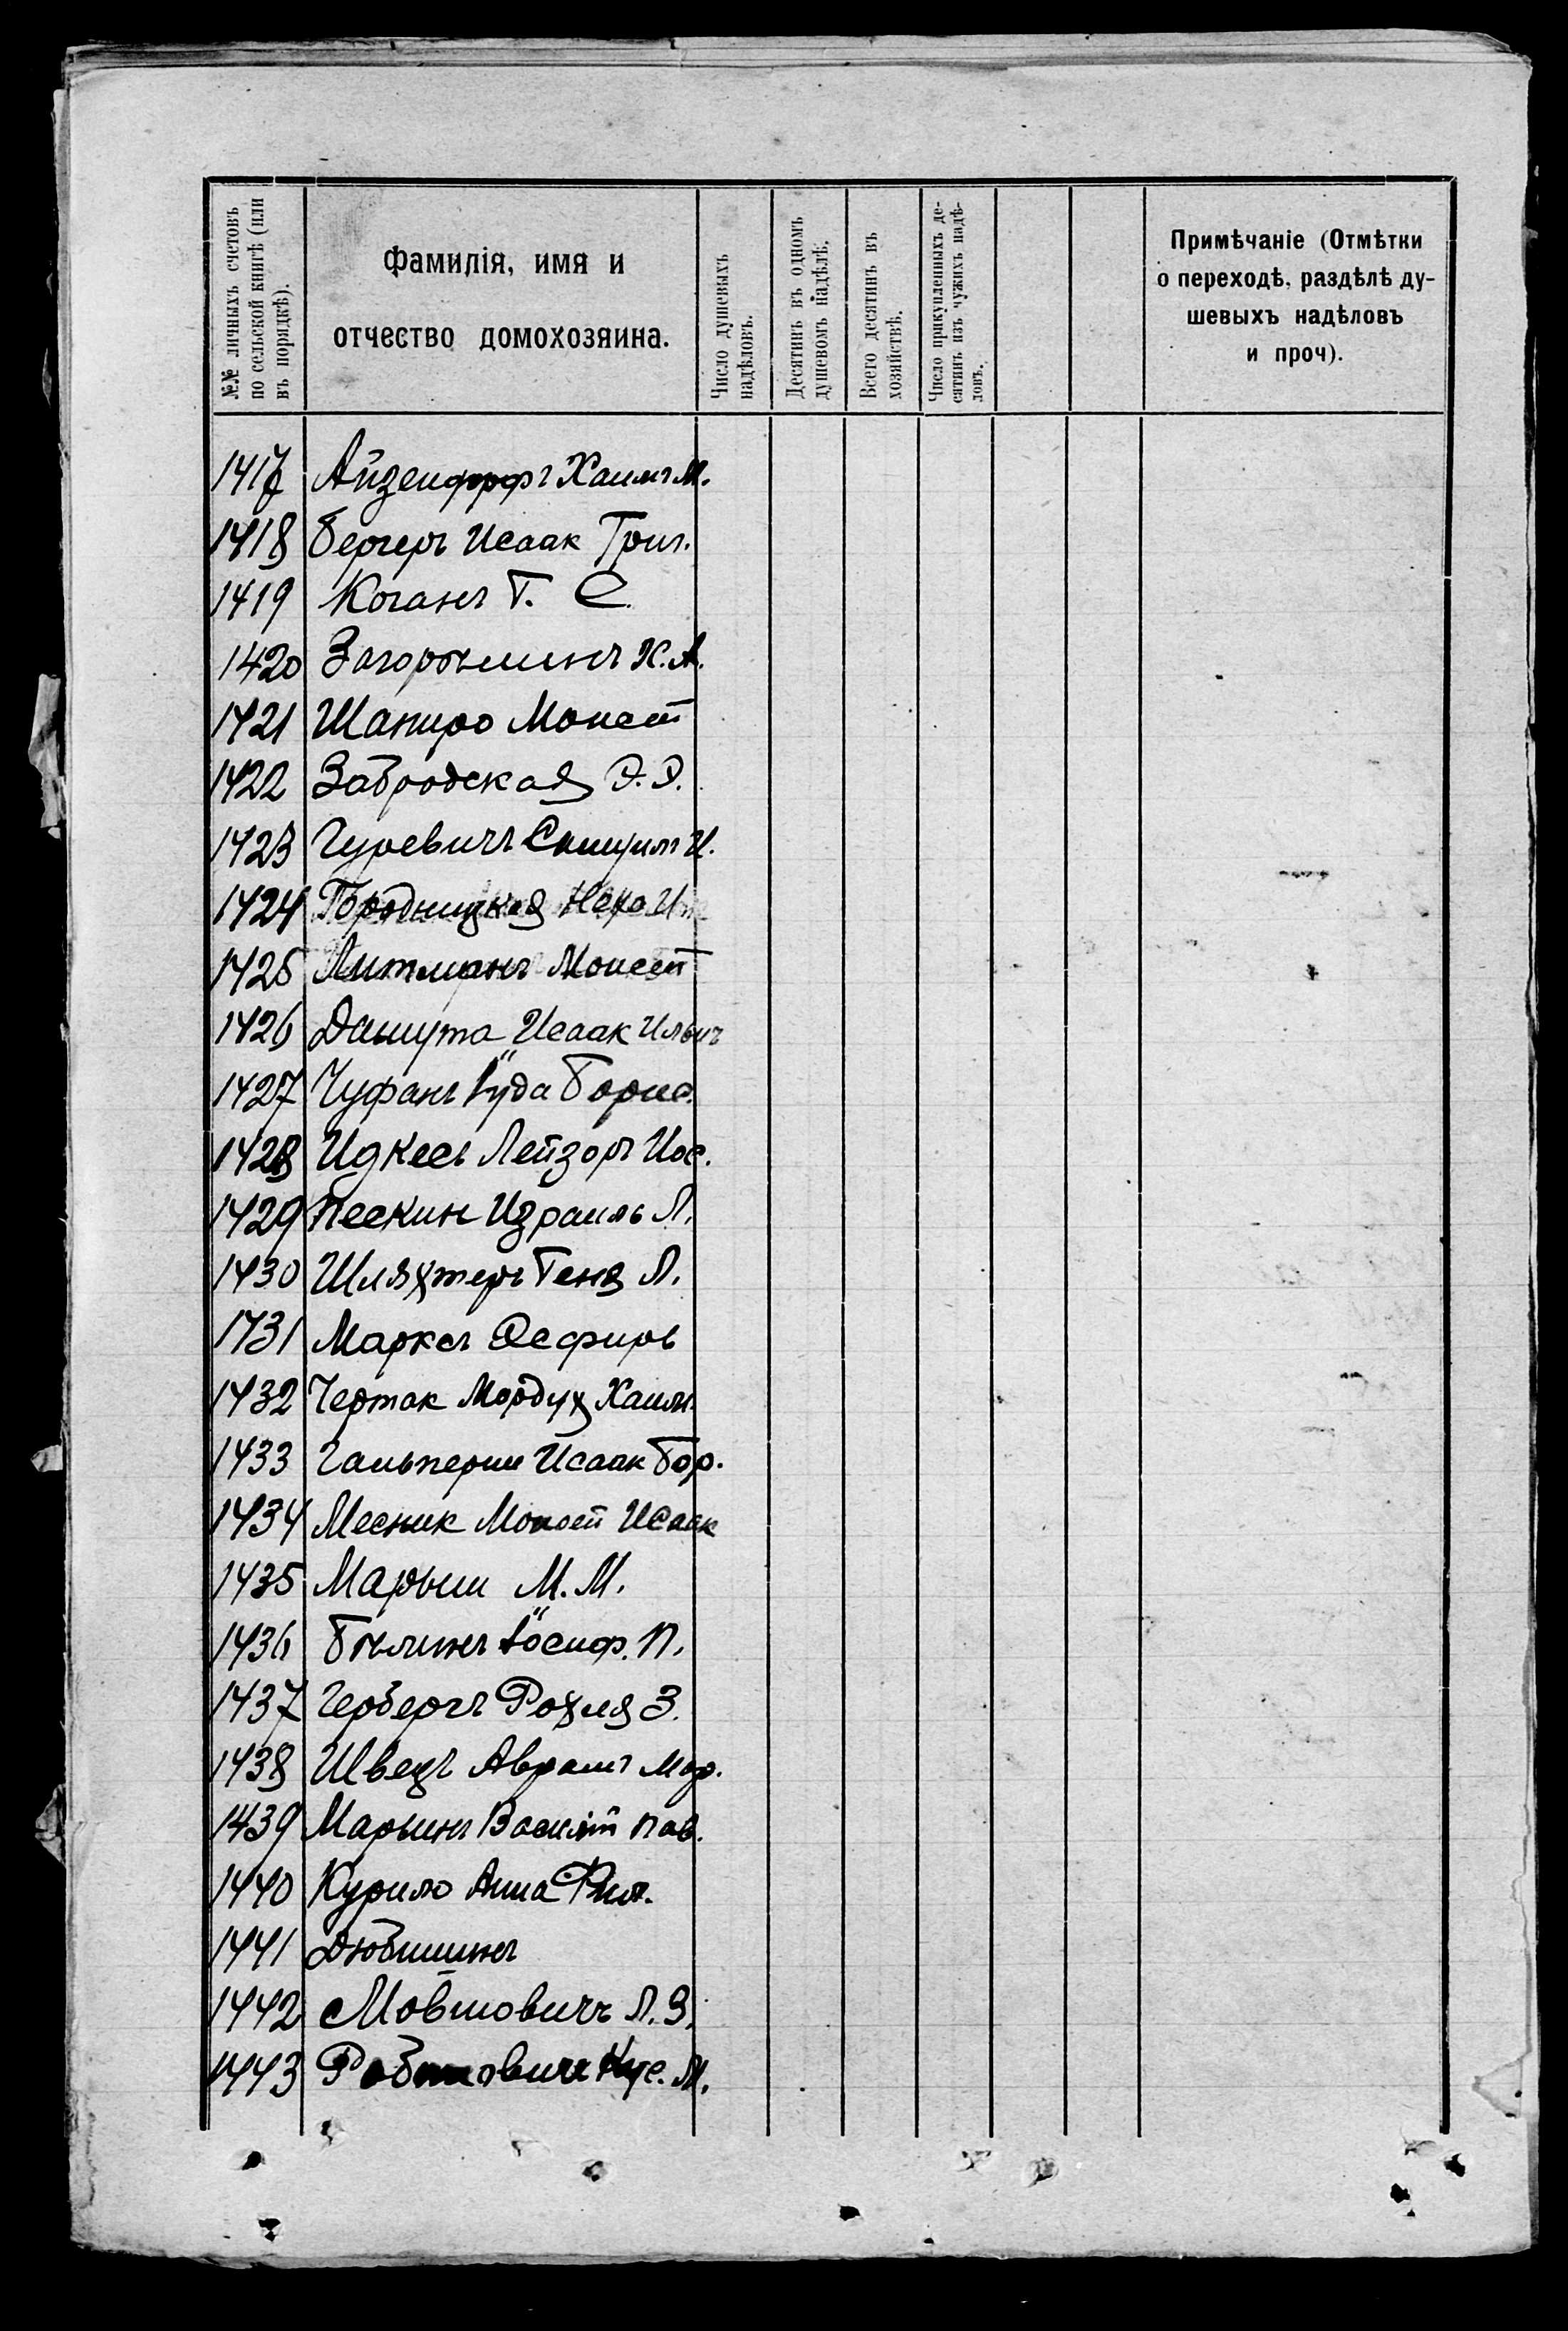 №№ личныхъ счетовъ
по сельской книгѣ (или
въ порядкѣ).
Фамилія, имя и
отчество домохозяина.
Число душевыхъ
надѣловъ.
Десятинъ въ одномъ
душевомъ надѣлѣ.
Всего десятинъ въ
хозяйствѣ.
Число прикупленныхъ де-
сятинъ изъ чужихъ надѣ-
ловъ.
Примѣчаніе (Отмѣтки
о переходѣ, раздѣлѣ ду-
шевыхъ надѣловъ
и проч).
1417 Хаимъ М.
1418 Бергеръ Исаак Григ.
1419 Коганъ Г. С.
1420 Х. А.
1421 Шапиро Моисей
1422 Забродская Э. Э.
1423 Гуревичъ И.
1424 Городницкая
1425 Литманъ Моисей
1426 Исаак Ильич
1427 Чуфанъ Іуда Борис.
1428 Идкесъ Лейзоръ Иос.
1429 Пескин Израиль Л.
1430 Шляхтеръ Геня Л.
1431 Марксъ Эсфирь
1432 Чертак Мордух Хаим.
1433 Гальперин Исаак Бор.
1434 Месник Моисей Исаак
1435 Марьин М. М.
1436 Бѣлинъ Іосиф. П.
1437 Гербергъ Рохля З.
1438 Швецъ Аврамъ Мор.
1439 Марьинъ Василій Пав.
1440 Курило Анна Фил.
1441
1442 Мовшовичъ Л. З.
1443 М.